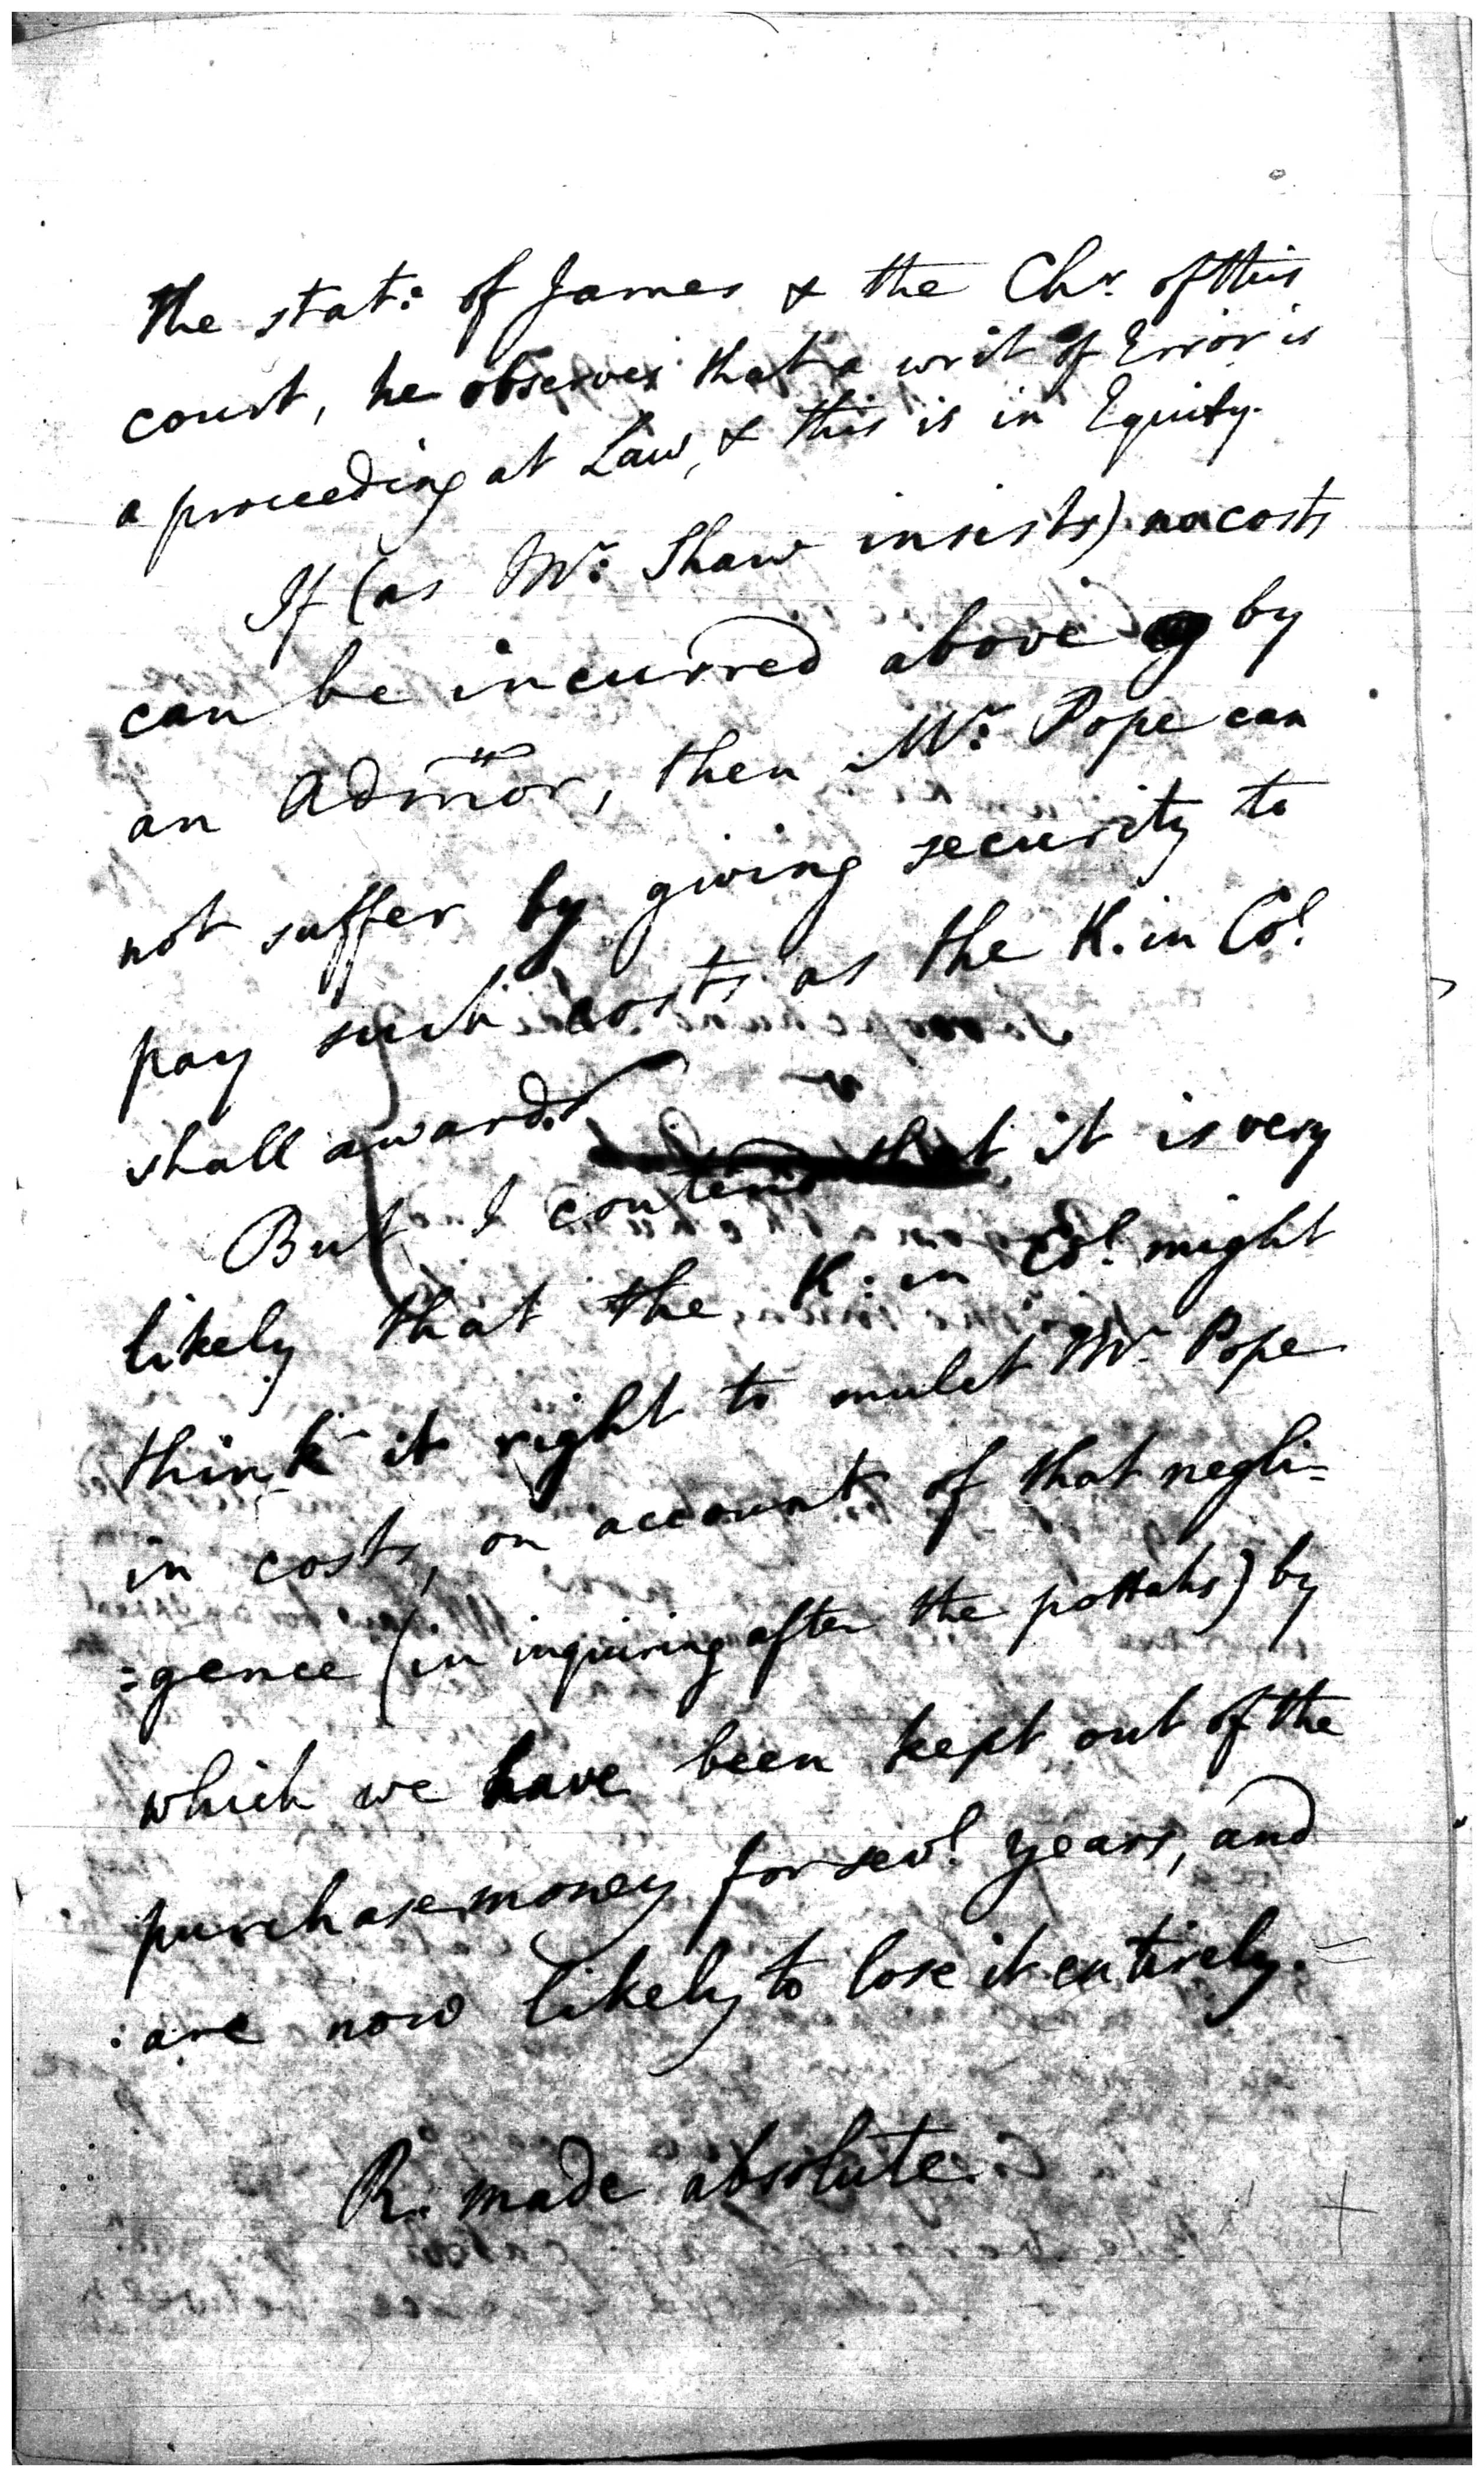 the stat: of James & the Chr. of this
court, he observes that a writ of Error is
a proceeding at Law, & this is in Equity.
If (as Mr: Shaw insists) no costs
can be incurred above by
an Admor, then Mr: Pope can
not suffer by giving security to
pay such costs as the K. in Col
shall award.
But I contend that it is very
likely that the K: in Col. might
think it right to mulct Mr. Pope
in costs, on account of that negli-
:gence (in inquiring after the pottahs) by
which we have been kept out of the
purchase money for sevl. years, and
:are now likely to lose it entirely.
R. made absolute.